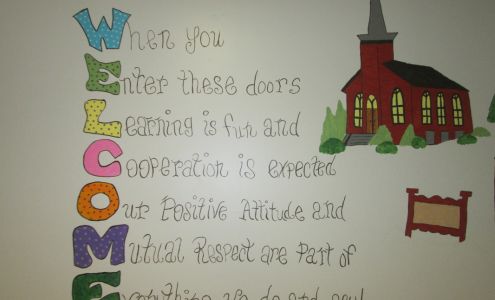 When you
Enter these doors
Learning is fun and
Cooperation is expected
Our Positive Attitude and
Mutual Respect are Part of
Everything we do and